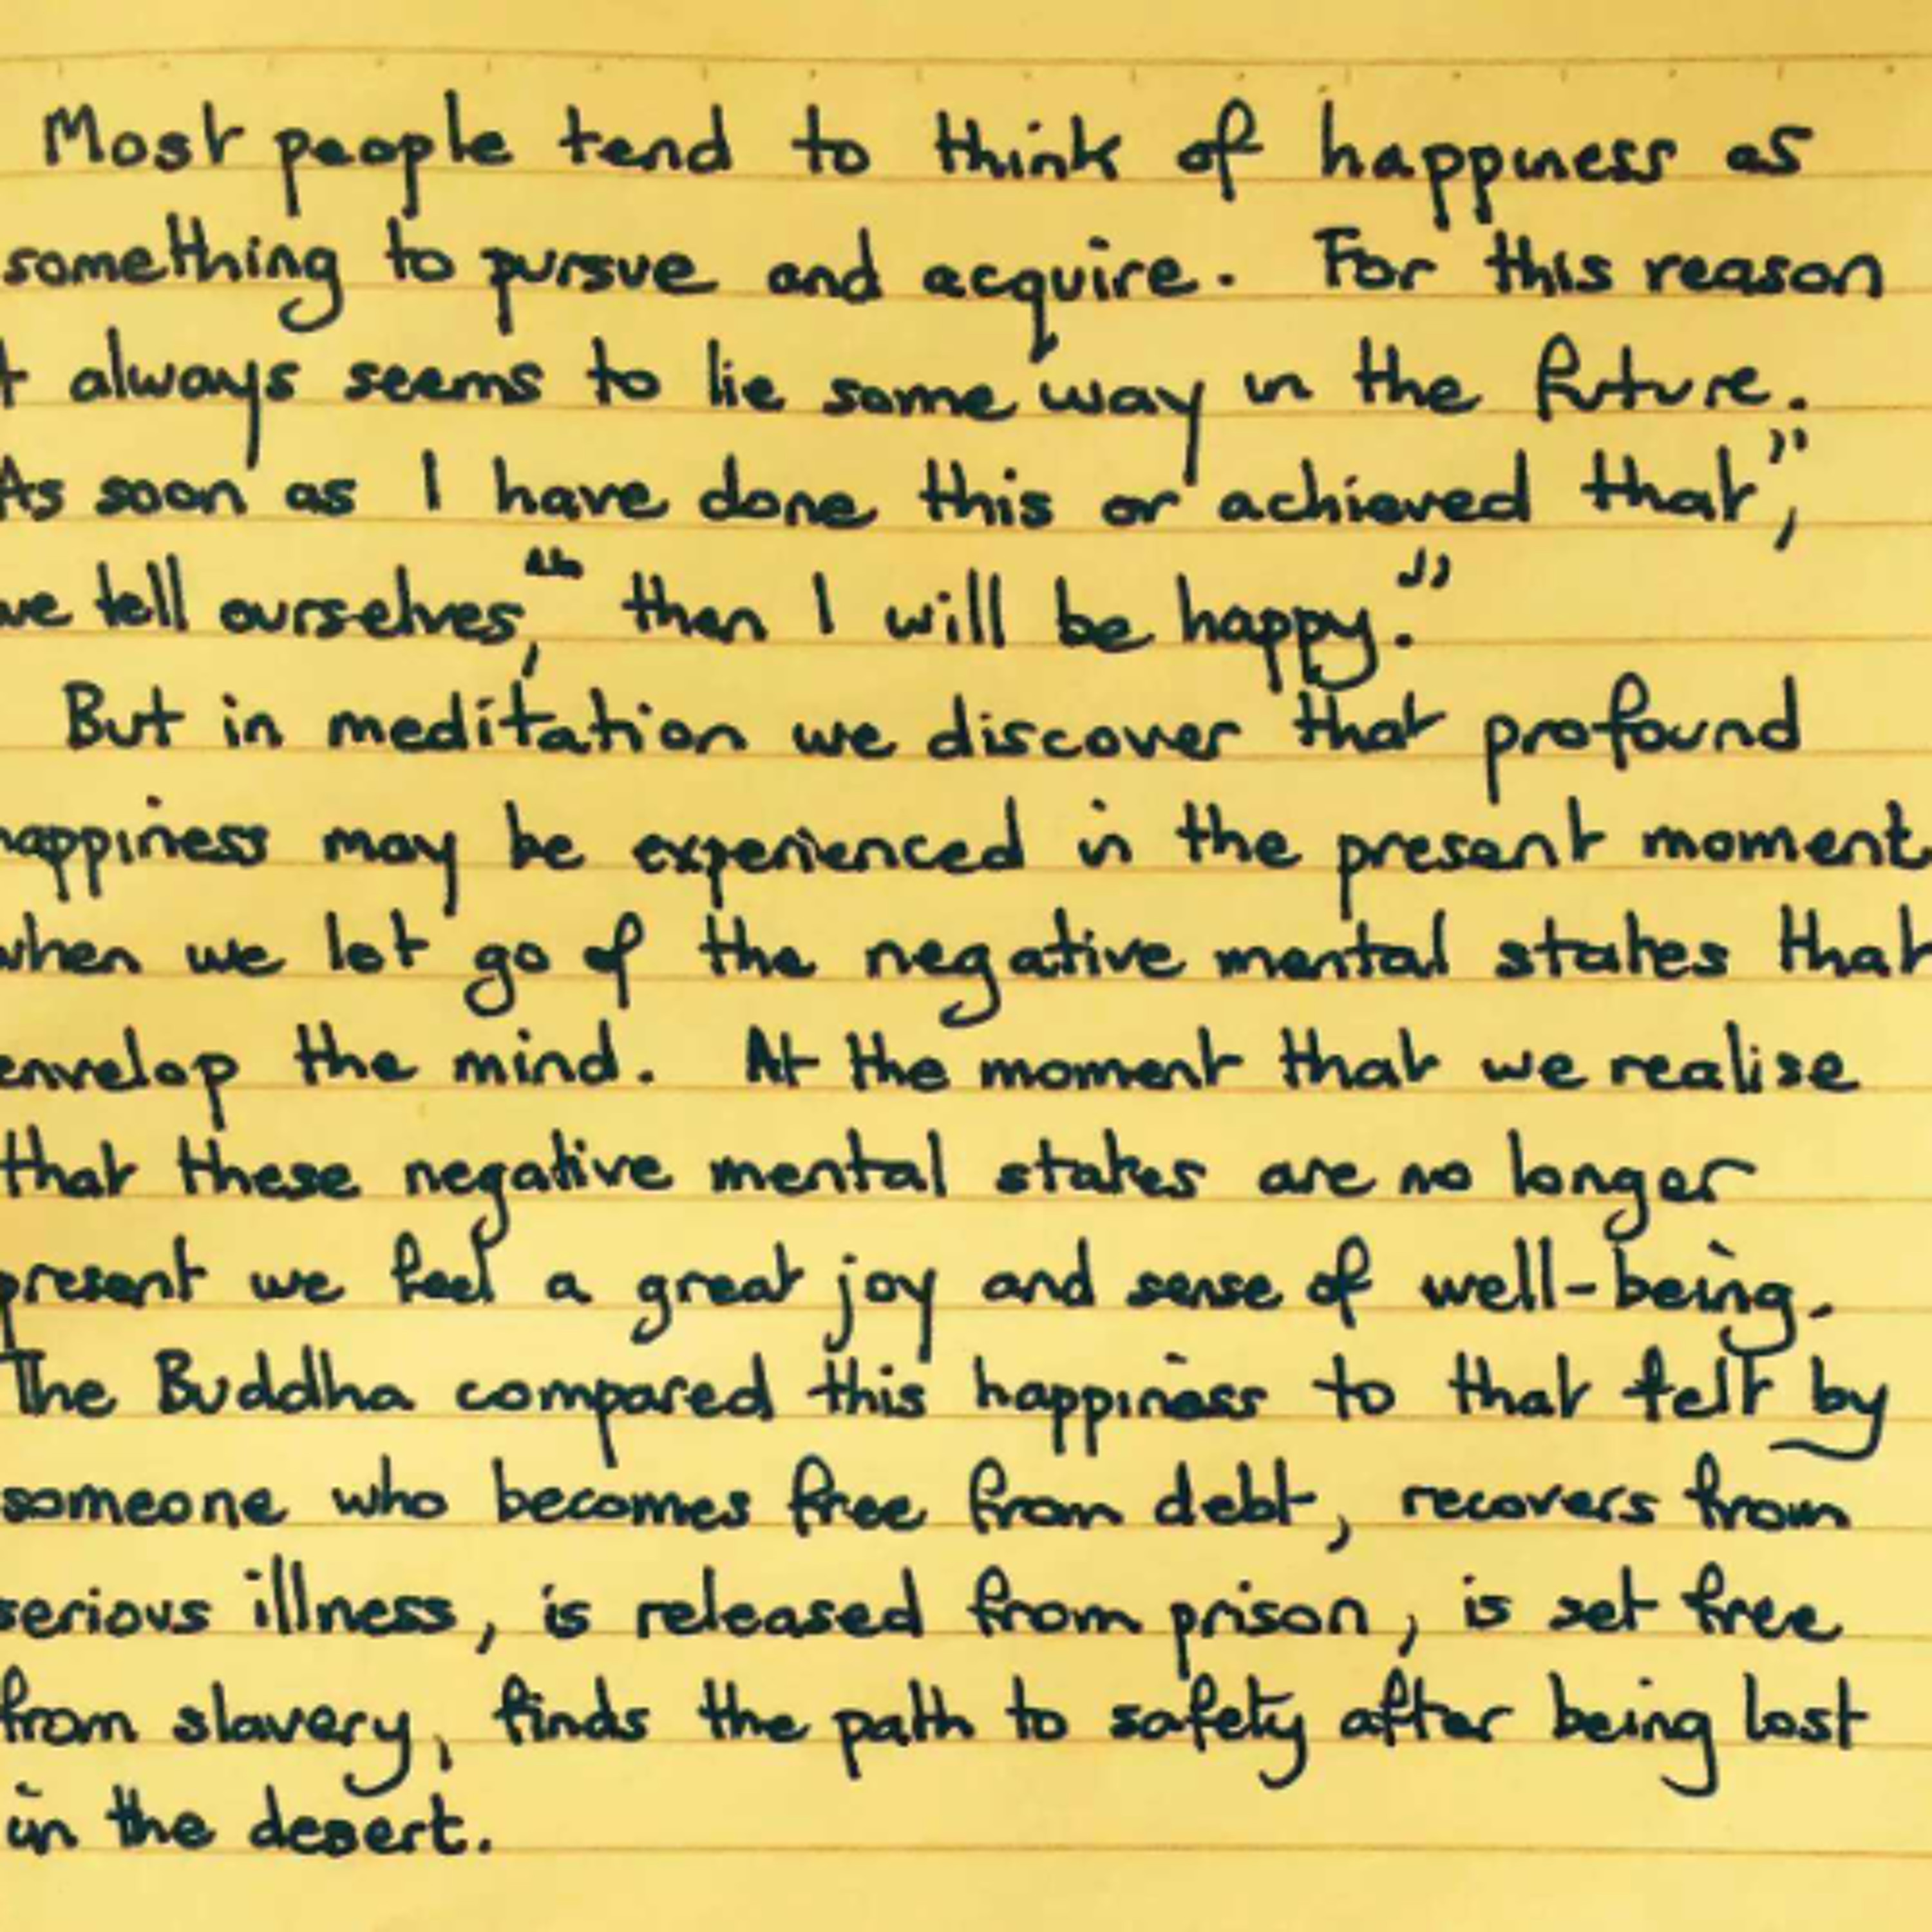 Most people tend to think of happiness as
something to pursue and acquire. For this reason
t always seems to lie some way in the future.
As soon as I have done this or achieved that,"
we tell ourselves, "then I will be happy."
But in meditation we discover that profound
happiness may be experienced in the present moment
when we let go of the negative mental states that
envelop the mind. At the moment that we realise
that these negative mental states are no longer
present we feel a great joy and sense of well-being.
The Buddha compared this happiness to that felt by
someone who becomes free from debt, recovers from
serious illness, is released from prison, is set free
from slavery, finds the path to safety after being lost
in the desert.